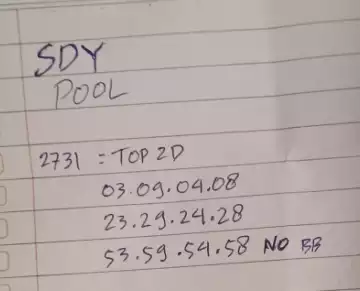 SDY
POOL
2731 = TOP 2D
03.09.04.08
23.29.24.28
53.59.54.58 NO BB